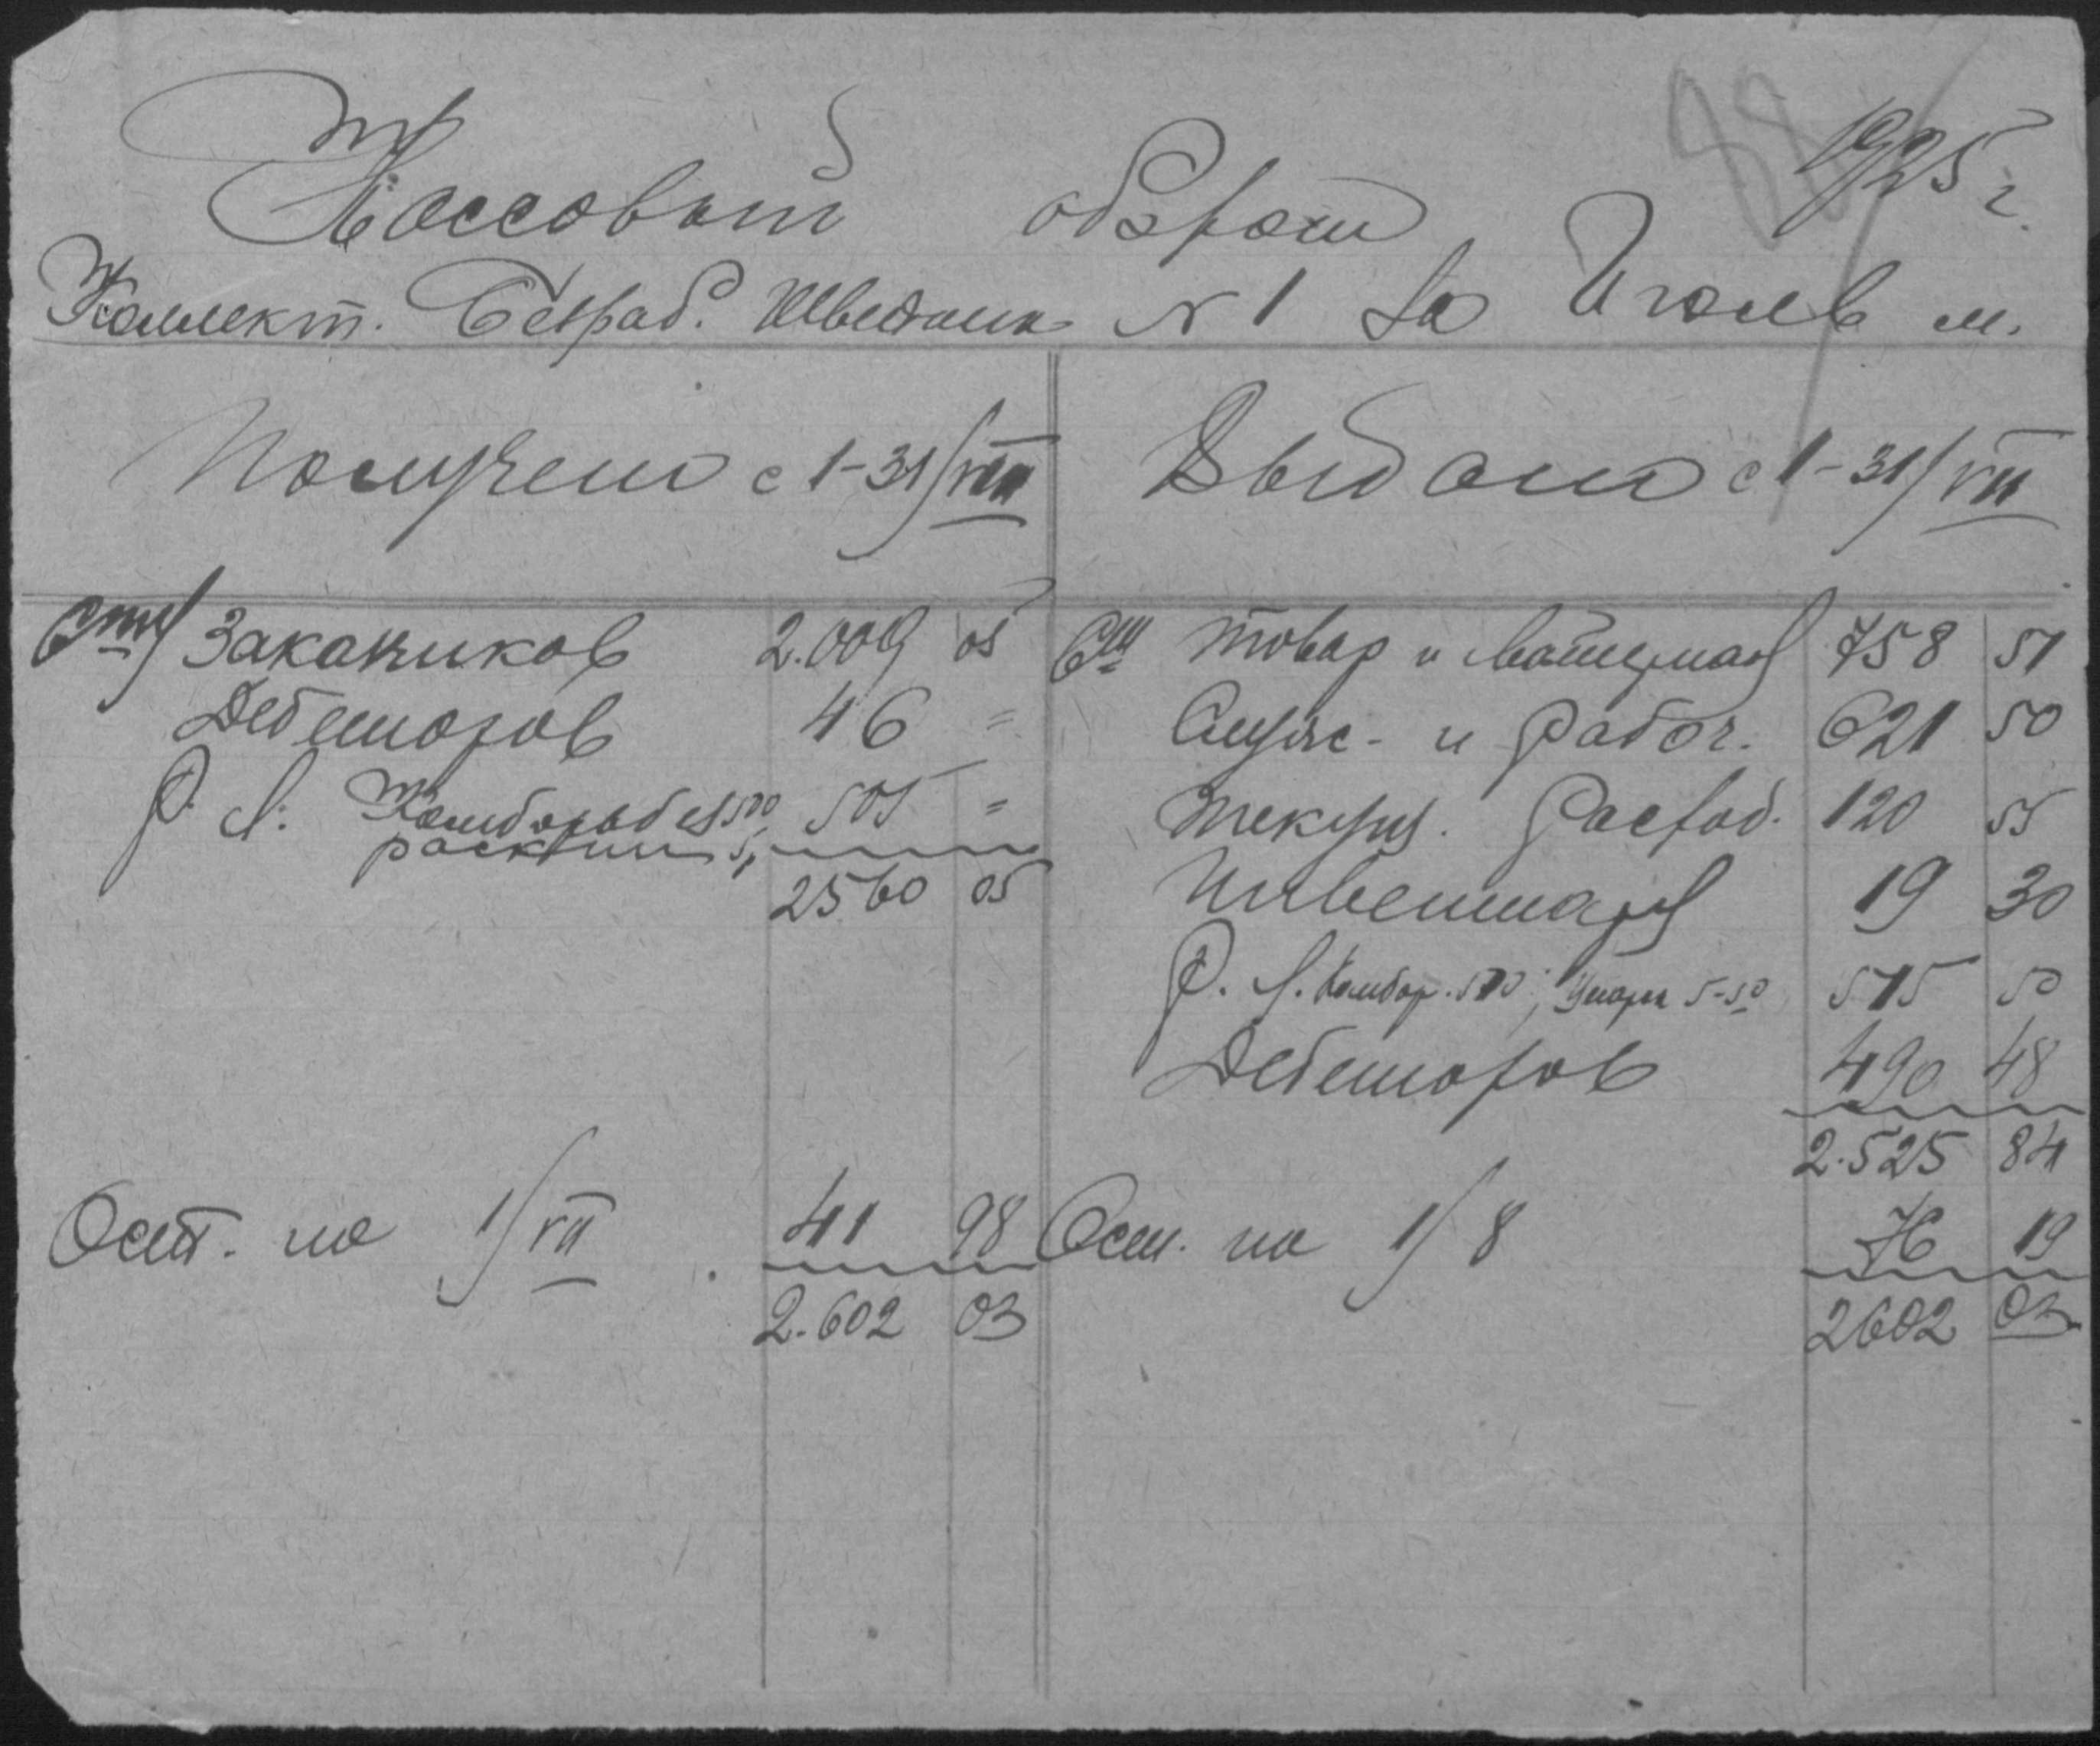 88
1925 г.
Кассовый оборот
Коллект. Безраб. Швейпом № 1 за Июль м.
Получено с 1-31/VII
Выдано с 1-31/VII
От Заказчиков 2.009 05
Дебеторов 46 =
Р. Л. 500 505 =
5,
2560 05
Ост. на 1/VII 41 98
2.602 03
Товар и Матерьял 758 51
Служ. и Рабоч. 621 50
Текущ. Расход. 120 55
Инвентарь 19 30
Р. Л. Комбор. 510; 5-50 515 50
Дебеторов 490 48
2.525 84
Ост. на 1/8 76 19
2602 03